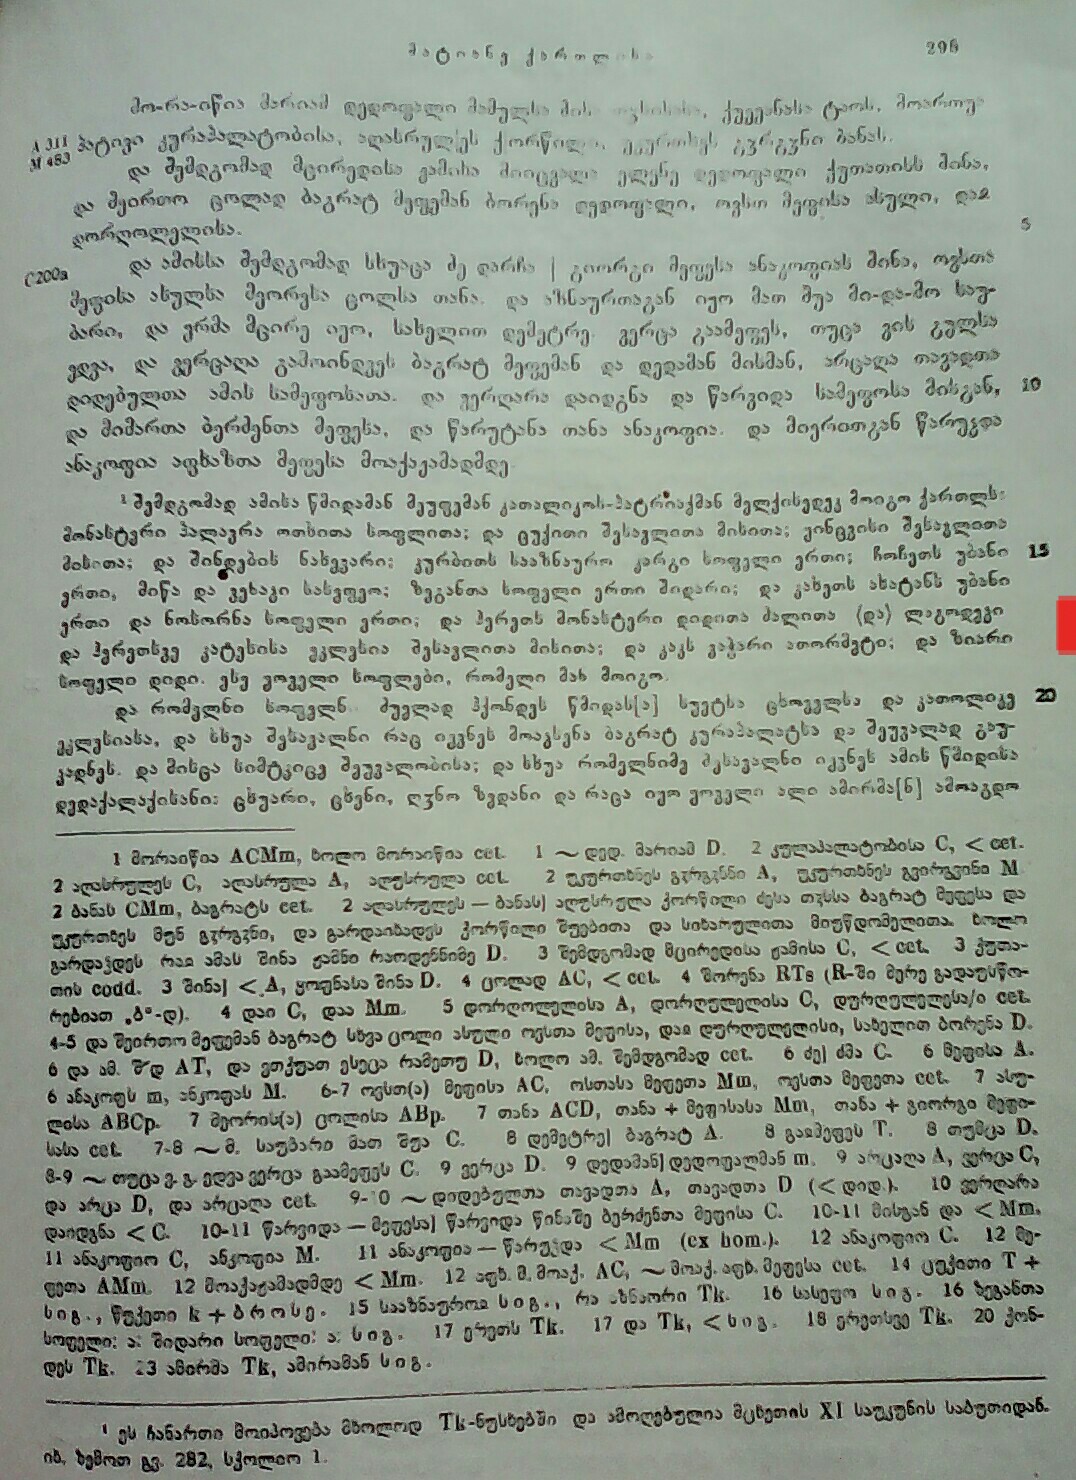 მატიანე ქართლისა
295
მო-რა-იწია მარიამ დედოფალი მამულსა მის თჳსისასა, ქუეყანასა ტაოს, მოართუა
A 311 პატივი კურაპალატობისა, აღასრულეს ქორწილი, უკურთხეს გჳრგჳნი ბანას.
M 483
და შემდგომად მცირედისა ჟამისა მოიცვალა ელენე დედოფალი ქუთათისს შინა,
და შეირთო ცოლად ბაგრატ მეფემან ბორენა დედოფალი, ოვსთ მეფისა ასული, დაჲ
5
დორღოლელისა.
C200a
და ამისსა შემდგომად სხუაცა ძე დარჩა | გიორგი მეფესა ანაკოფიას შინა, ოვსთა
მეფისა ასულსა მეორესა ცოლსა თანა. და აზნაურთაგან იყო მათ შუა მი-და-მო საუ-
ბარი, და ყრმა მცირე იყო, სახელით დემეტრე. ვერცა გაამეფეს, თუცა ვის გულსა
ედვა, და ვერცაღა გამოინდვეს ბაგრატ მეფემან და დედამან მისმან, არცაღა თავადთა
დიდებულთა ამის სამეფოსათა. და ვერღარა დაიდგნა და წარვიდა სამეფოსა მისგან, 10
და მიმართა ბერძენთა მეფესა, და წარუტანა თანა ანაკოფია. და მიერითგან წარუჴდა
ანაკოფია აფხაზთა მეფესა მოაქაჟამადმდე.
¹ შემდგომად ამისა წმიდამან მეუფემან კათალიკოს-პატრიაქმან მელქისედეკ მოიგო ქართლს:
მონასტერი პალავრა ოთხითა სოფლითა; და ცუქითი შესავლითა მისითა; ყინცვისი შესავლითა
მისითა; და შინდების ნახევარი; კურბითს სააზნაურო კარგი სოფელი ერთი; ჩოჩეთს უბანი 15
ერთი, მიწა და ვენაჴი სასეფეო; ზეგანთა სოფელი ერთი შიდარი; და კახეთს ახატანს უბანი
ერთი და ნოსორნა სოფელი ერთი; და ჰერეთს მონასტერი დიდითა ძალითა (და) ლაგოდეგი
და ჰერეთსვე კატეხისა ეკლესია შესავლითა მისითა; და კაკს ვაჭარი ათორმეტი; და ზიარი
სოფელი დიდი. ესე ყოველი სოფლები, რომელი მან მოიგო.
და რომელნი სოფელნი ძუელად ჰქონდეს წმიდას[ა] სუეტსა ცხოველსა და კათოლიკე 20
ეკლესიასა, და სხუა შესავალნი რაც იყვნეს მოაჴსენა ბაგრატ კურაპალატსა და შეუვალად გაუ-
ჴადნეს. და მისცა სიმტკიცე შეუვალობისა; და სხუა რომელნიმე შესავალნი იყვნეს ამის წმიდისა
დედაქალაქისანი: ცხუარი, ცხენი, ღჳნო ზედანი და რაცა იყო ყოველი ალი ამირმა[ნ] ამოაგდო
1 მორაიწია ACMm, ხოლო მორაიწია cet. 1 ~ დედ. მარიამ D. 2 კულაპალატობისა C, < cet.
2 აღასრულეს C, აღასრულა A, აღუსრულა cet. 2 უკურთხნეს გჳრგჳნნი A, უკურთხნეს გვირგვინი M
2 ბანას CMm, ბაგრატს cet. 2 აღასრულეს — ბანას] აღუსრულა ქორწილი ძესა თჳსსა ბაგრატ მეფესა და
უკურთხეს მუნ გჳრგჳნი, და გარდაიხადეს ქორწილი შუებითა და სიხარულითა მიუწდომელითა. ხოლო
გარდაჰდეს რაჲ ამას შინა ჟამნი რაოდენნიმე D. 3 შემდგომად მცირედისა ჟამისა C, < cet. 3 ქუთა-
თის codd. 3 შინა] < A, ყოფნასა შინა D. 4 ცოლად AC, < cet. 4 შორენა RTs (R-ში მერე გადაუსწო-
რებიათ „ბ“-დ). 4 დაი C, დაა Mm. 5 დორღოლელისა A, დორღულელისა C, დურღულელესა/ი cet.
4-5 და შეირთო მეფემან ბაგრატ სხვა ცოლი ასული ოვსთა მეფისა, დაჲ დურღულელისი, სახელით ბორენა D.
6 და ამ. შ~დ AT, და ვთქუათ ესეცა რამეთუ D, ხოლო ამ. შემდგომად cet. 6 ძე] ძმა C. 6 მეფისა A.
6 ანაკოფს m, ანკოფას M. 6-7 ოვსთ(ა) მეფისა AC, ოსთასა მეფეთა Mm, ოვსთა მეფეთა cet. 7 ასუ-
ლისა ABCp. 7 მეორის(ა) ცოლისა ABp. 7 თანა ACD, თანა + მეფისასა Mm, თანა + გიორგი მეფი-
სასა cet. 7-8 ~ მ. საუბარი მათ შუა C. 8 დემეტრე] ბაგრატ A. 8 გაამეფეს T. 8 თუმცა D.
8-9 ~ თუცა ვ. გ. ედვა ვერცა გაამეფეს C. 9 ვერცა D. 9 დედამან] დედოფალმან m. 9 არცაღა A, ვერცა C,
და არცა D, და არცაღა cet. 9-10 ~ დიდებულთა თავადთა A, თავადთა D (< დიდ.). 10 ვერღარა
დაიდგნა < C. 10-11 წარვიდა — მეფესა] წარვიდა წინაშე ბერძენთა მეფისა C. 10-11 მისგან და < Mm.
11 ანაკოფიო C, ანკოფია M. 11 ანაკოფია — წარუჴდა < Mm (ex hom.). 12 ანაკოფიო C. 12 მე-
ფეთა AMm. 12 მოაქაჟამადმდე < Mm. 12 აფხ. მ. მოაქ. AC, ~ მოაქ. აფხ. მეფესა cet. 14 ცუქითი T +
sig., წუქეთი k + brose. 15 სააზნაუროჲ sig., რა აზნაორი Tk. 16 სასეფო sig. 16 ზეგანთა
სოფელი: ა: შიდარი სოფელი: ა: sig. 17 ერეთს Tk. 17 და Tk, < sig. 18 ერეთსვე Tk. 20 ქონ-
დეს Tk. 23 ამირმა Tk, ამირამან sig.
¹ ეს ჩანართი მოიპოვება მხოლოდ Tk-ნუსხებში და ამოღებულია მცხეთის XI საუკუნის საბუთიდან.
იხ. ზემოთ გვ. 282, სქოლიო 1.